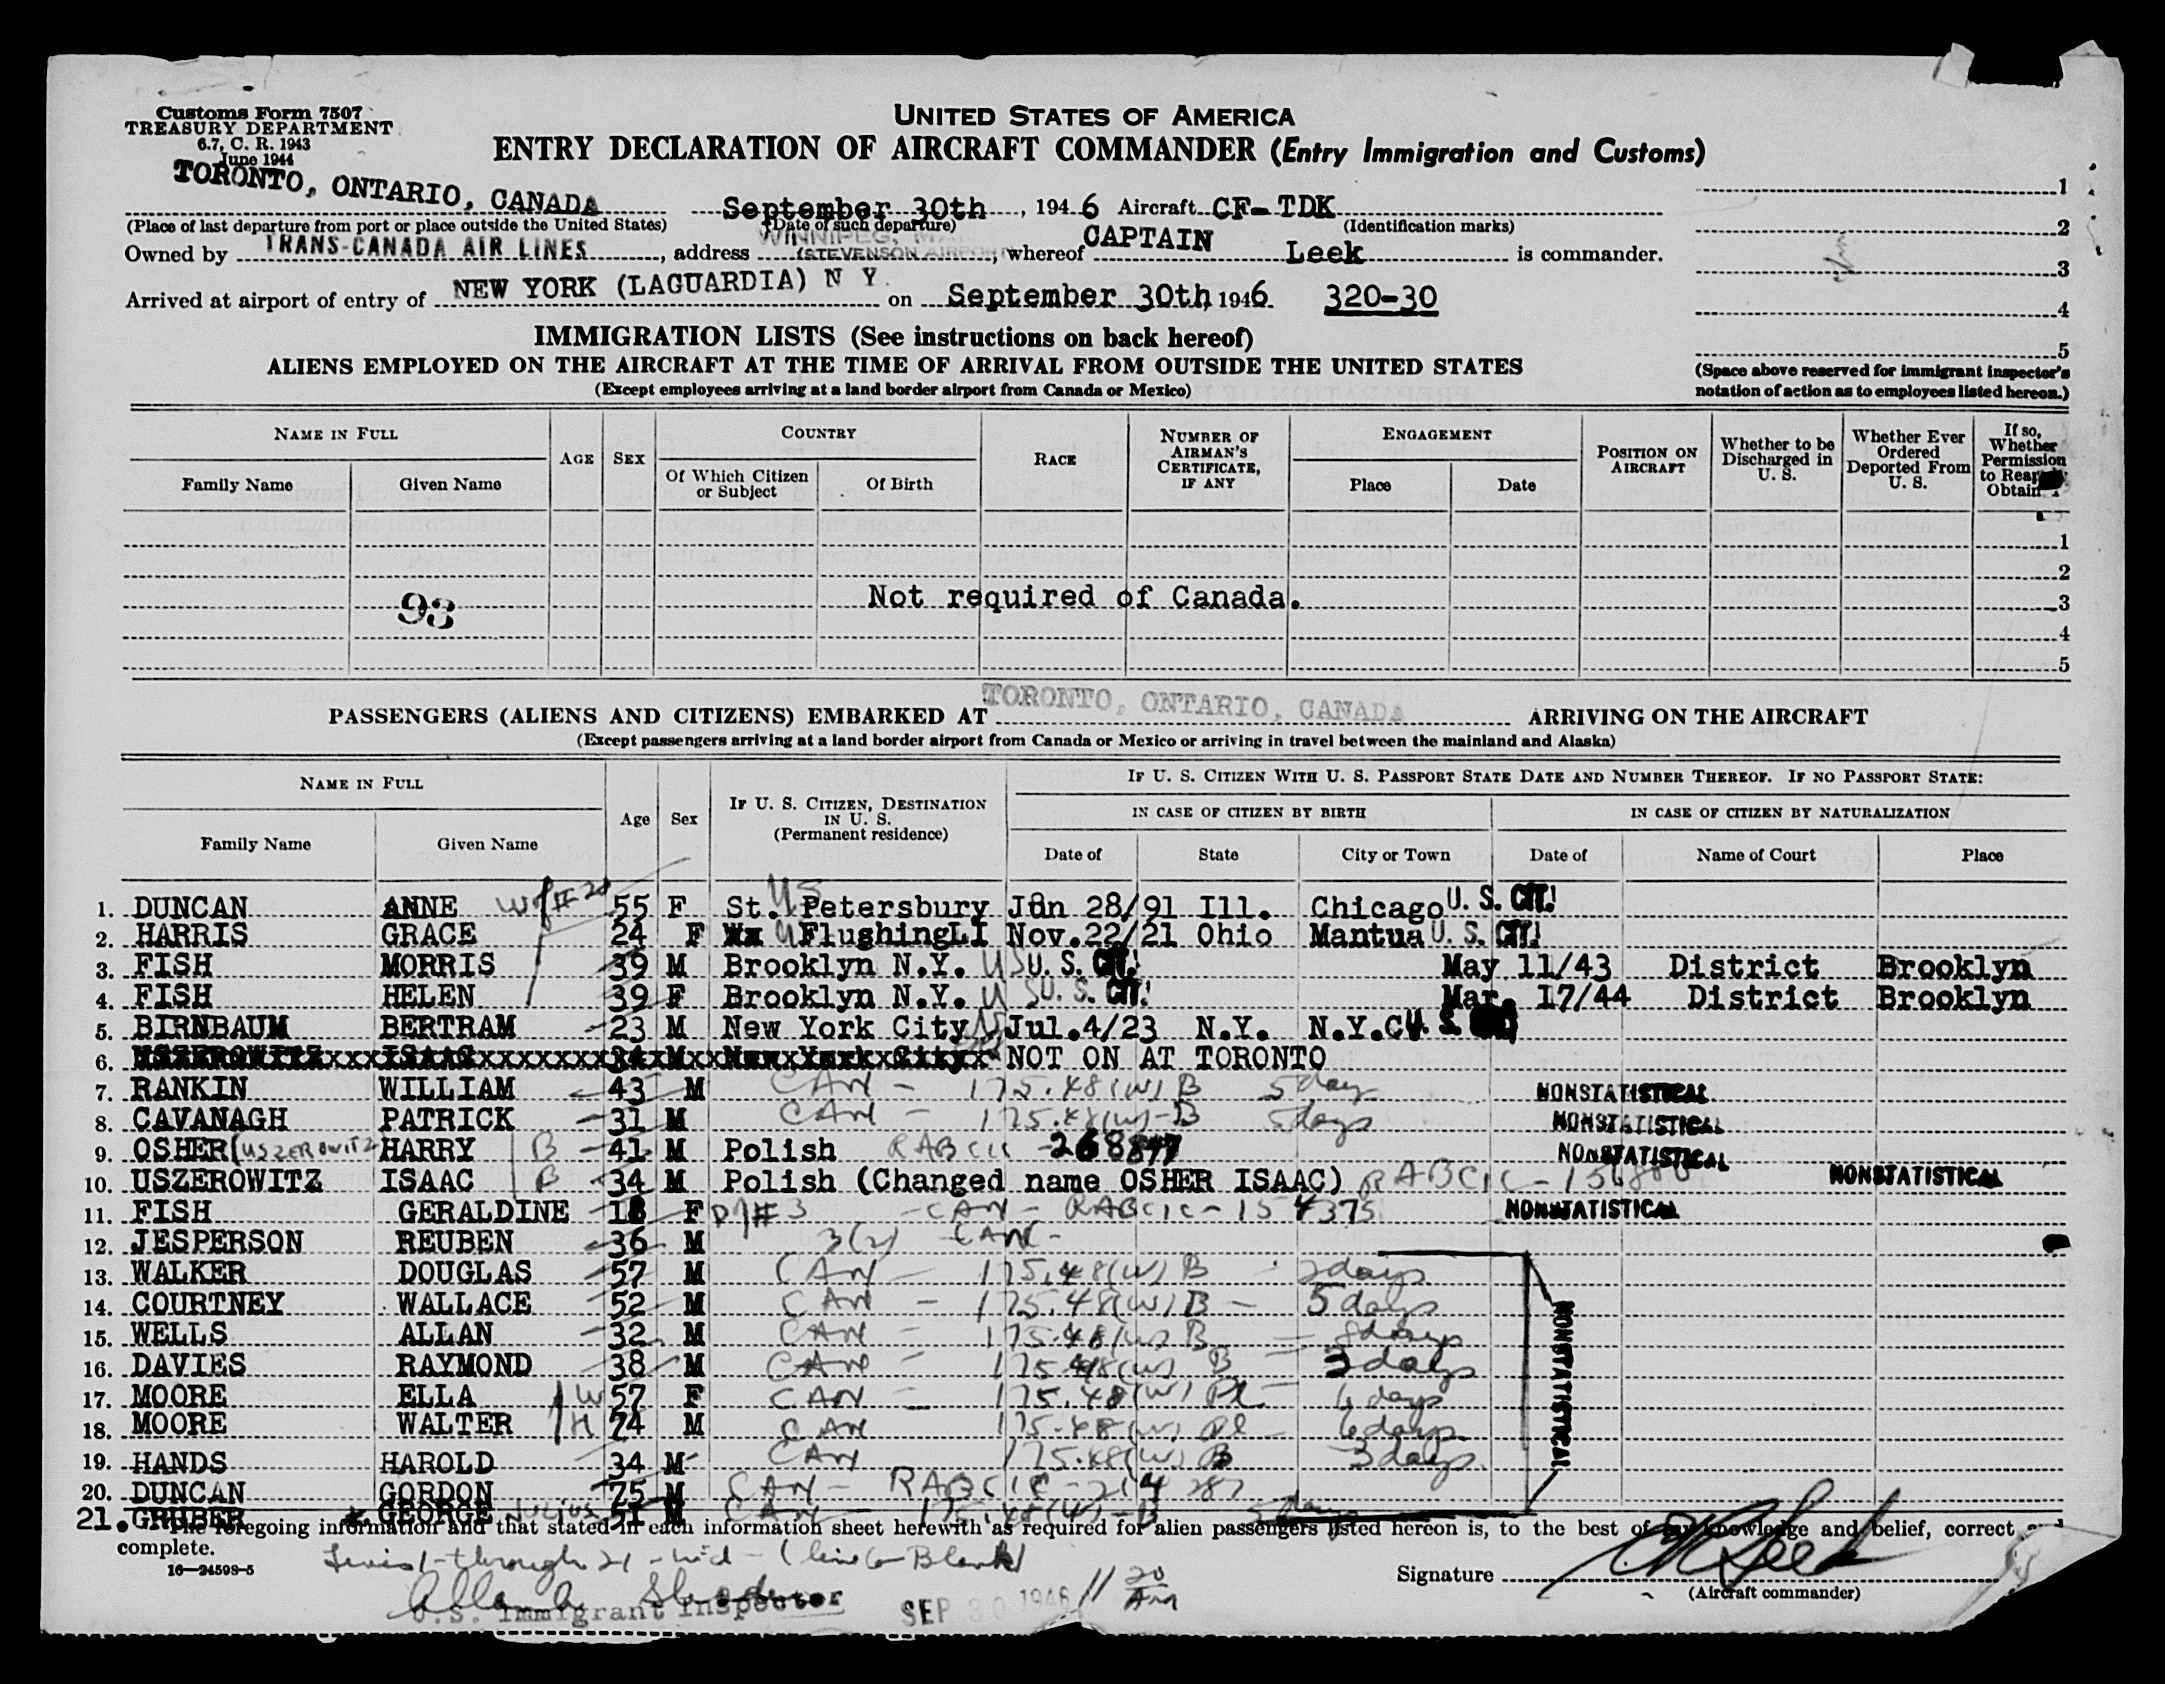 Customs Form 7507
TREASURY DEPARTMENT
6.7, C. R. 1943
June 1944
UNITED STATES OF AMERICA
ENTRY DECLARATION OF AIRCRAFT COMMANDER (Entry Immigration and Customs)
TORONTO, ONTARIO, CANADA September 30th, 1946 Aircraft CF-TDK
(Place of last departure from port or place outside the United States) (Date of such departure) (Identification marks)
Owned by TRANS-CANADA AIR LINES, address WINNIPEG, (STEVENSON AIRPORT, whereof CAPTAIN Leek is commander.
Arrived at airport of entry of NEW YORK (LAGUARDIA) N Y. on September 30th, 1946 320-30
1
2
3
4
5
(Space above reserved for immigrant inspector's notation of action as to employees listed hereon.)
IMMIGRATION LISTS (See instructions on back hereof)
ALIENS EMPLOYED ON THE AIRCRAFT AT THE TIME OF ARRIVAL FROM OUTSIDE THE UNITED STATES
(Except employees arriving at a land border airport from Canada or Mexico)
NAME IN FULL AGE SEX COUNTRY RACE NUMBER OF AIRMAN'S CERTIFICATE, IF ANY ENGAGEMENT POSITION ON AIRCRAFT Whether to be Discharged in U. S. Whether Ever Ordered Deported From U. S. If so, Whether Permission to Reap Obtain
Family Name Given Name Of Which Citizen or Subject Of Birth Place Date
1
2
93 Not required of Canada. 3
4
5
PASSENGERS (ALIENS AND CITIZENS) EMBARKED AT TORONTO, ONTARIO, CANADA ARRIVING ON THE AIRCRAFT
(Except passengers arriving at a land border airport from Canada or Mexico or arriving in travel between the mainland and Alaska)
NAME IN FULL Age Sex IF U. S. CITIZEN, DESTINATION IN U. S. (Permanent residence) IF U. S. CITIZEN WITH U. S. PASSPORT STATE DATE AND NUMBER THEREOF. IF NO PASSPORT STATE:
IN CASE OF CITIZEN BY BIRTH IN CASE OF CITIZEN BY NATURALIZATION
Family Name Given Name Date of State City or Town Date of Name of Court Place
1. DUNCAN ANNE 55 F St. Petersbury US Jan 28/91 Ill. Chicago U. S. CIT!
2. HARRIS GRACE 24 F FlushingLI Nov.22/21 Ohio Mantua U. S. CIT!
3. FISH MORRIS 39 M Brooklyn N.Y. US U. S. CIT! May 11/43 District Brooklyn
4. FISH HELEN 39 F Brooklyn N.Y. US U. S. CIT! Mar. 17/44 District Brooklyn
5. BIRNBAUM BERTRAM 23 M New York City US Jul.4/23 N.Y. N.Y.C U. S.
6. USZEROWITZ ISAAC 34 M New York City NOT ON AT TORONTO
7. RANKIN WILLIAM 43 M CAN - 175.48(W) B 5 day NONSTATISTICAL
8. CAVANAGH PATRICK 31 M CAN - 175.48(W)-B 5 days NONSTATISTICAL
9. OSHER (USZEROWITZ HARRY B 41 M Polish RABCIC NONSTATISTICAL
10. USZEROWITZ ISAAC B 34 M Polish (Changed name OSHER ISAAC) RABCIC - NONSTATISTICAL
11. FISH GERALDINE 18 F D/#3 - CAN - RABCIC - 154375 NONSTATISTICAL
12. JESPERSON REUBEN 36 M 3(2) CAN -
13. WALKER DOUGLAS 57 M CAN - 175.48(W) B 2 days
14. COURTNEY WALLACE 52 M CAN - 175.48(W) B - 5 days
15. WELLS ALLAN 32 M CAN - 175.48(W) B - 8 days
16. DAVIES RAYMOND 38 M CAN - 175.48(W) B 3 days
17. MOORE ELLA W 57 F CAN - 175.48(W) Pl - 6 days
18. MOORE WALTER H 74 M CAN 175.48(W) Pl 6 days
19. HANDS HAROLD 34 M CAN 175.48(W) B 3 days
20. DUNCAN GORDON 75 M CAN - RABCIC - 214 287
21. GRUBER GEORGE Julius 51 M CAN 175.48(W) - B 5 days
NONSTATISTICAL
The foregoing information and that stated in each information sheet herewith as required for alien passengers listed hereon is, to the best of my knowledge and belief, correct and
complete.
16—24598-5
Lines 1 - through 21 - (line 6 Blank)
Signature
(Aircraft commander)
U.S. Immigrant Inspector SEP 30 1946 11 20 Am